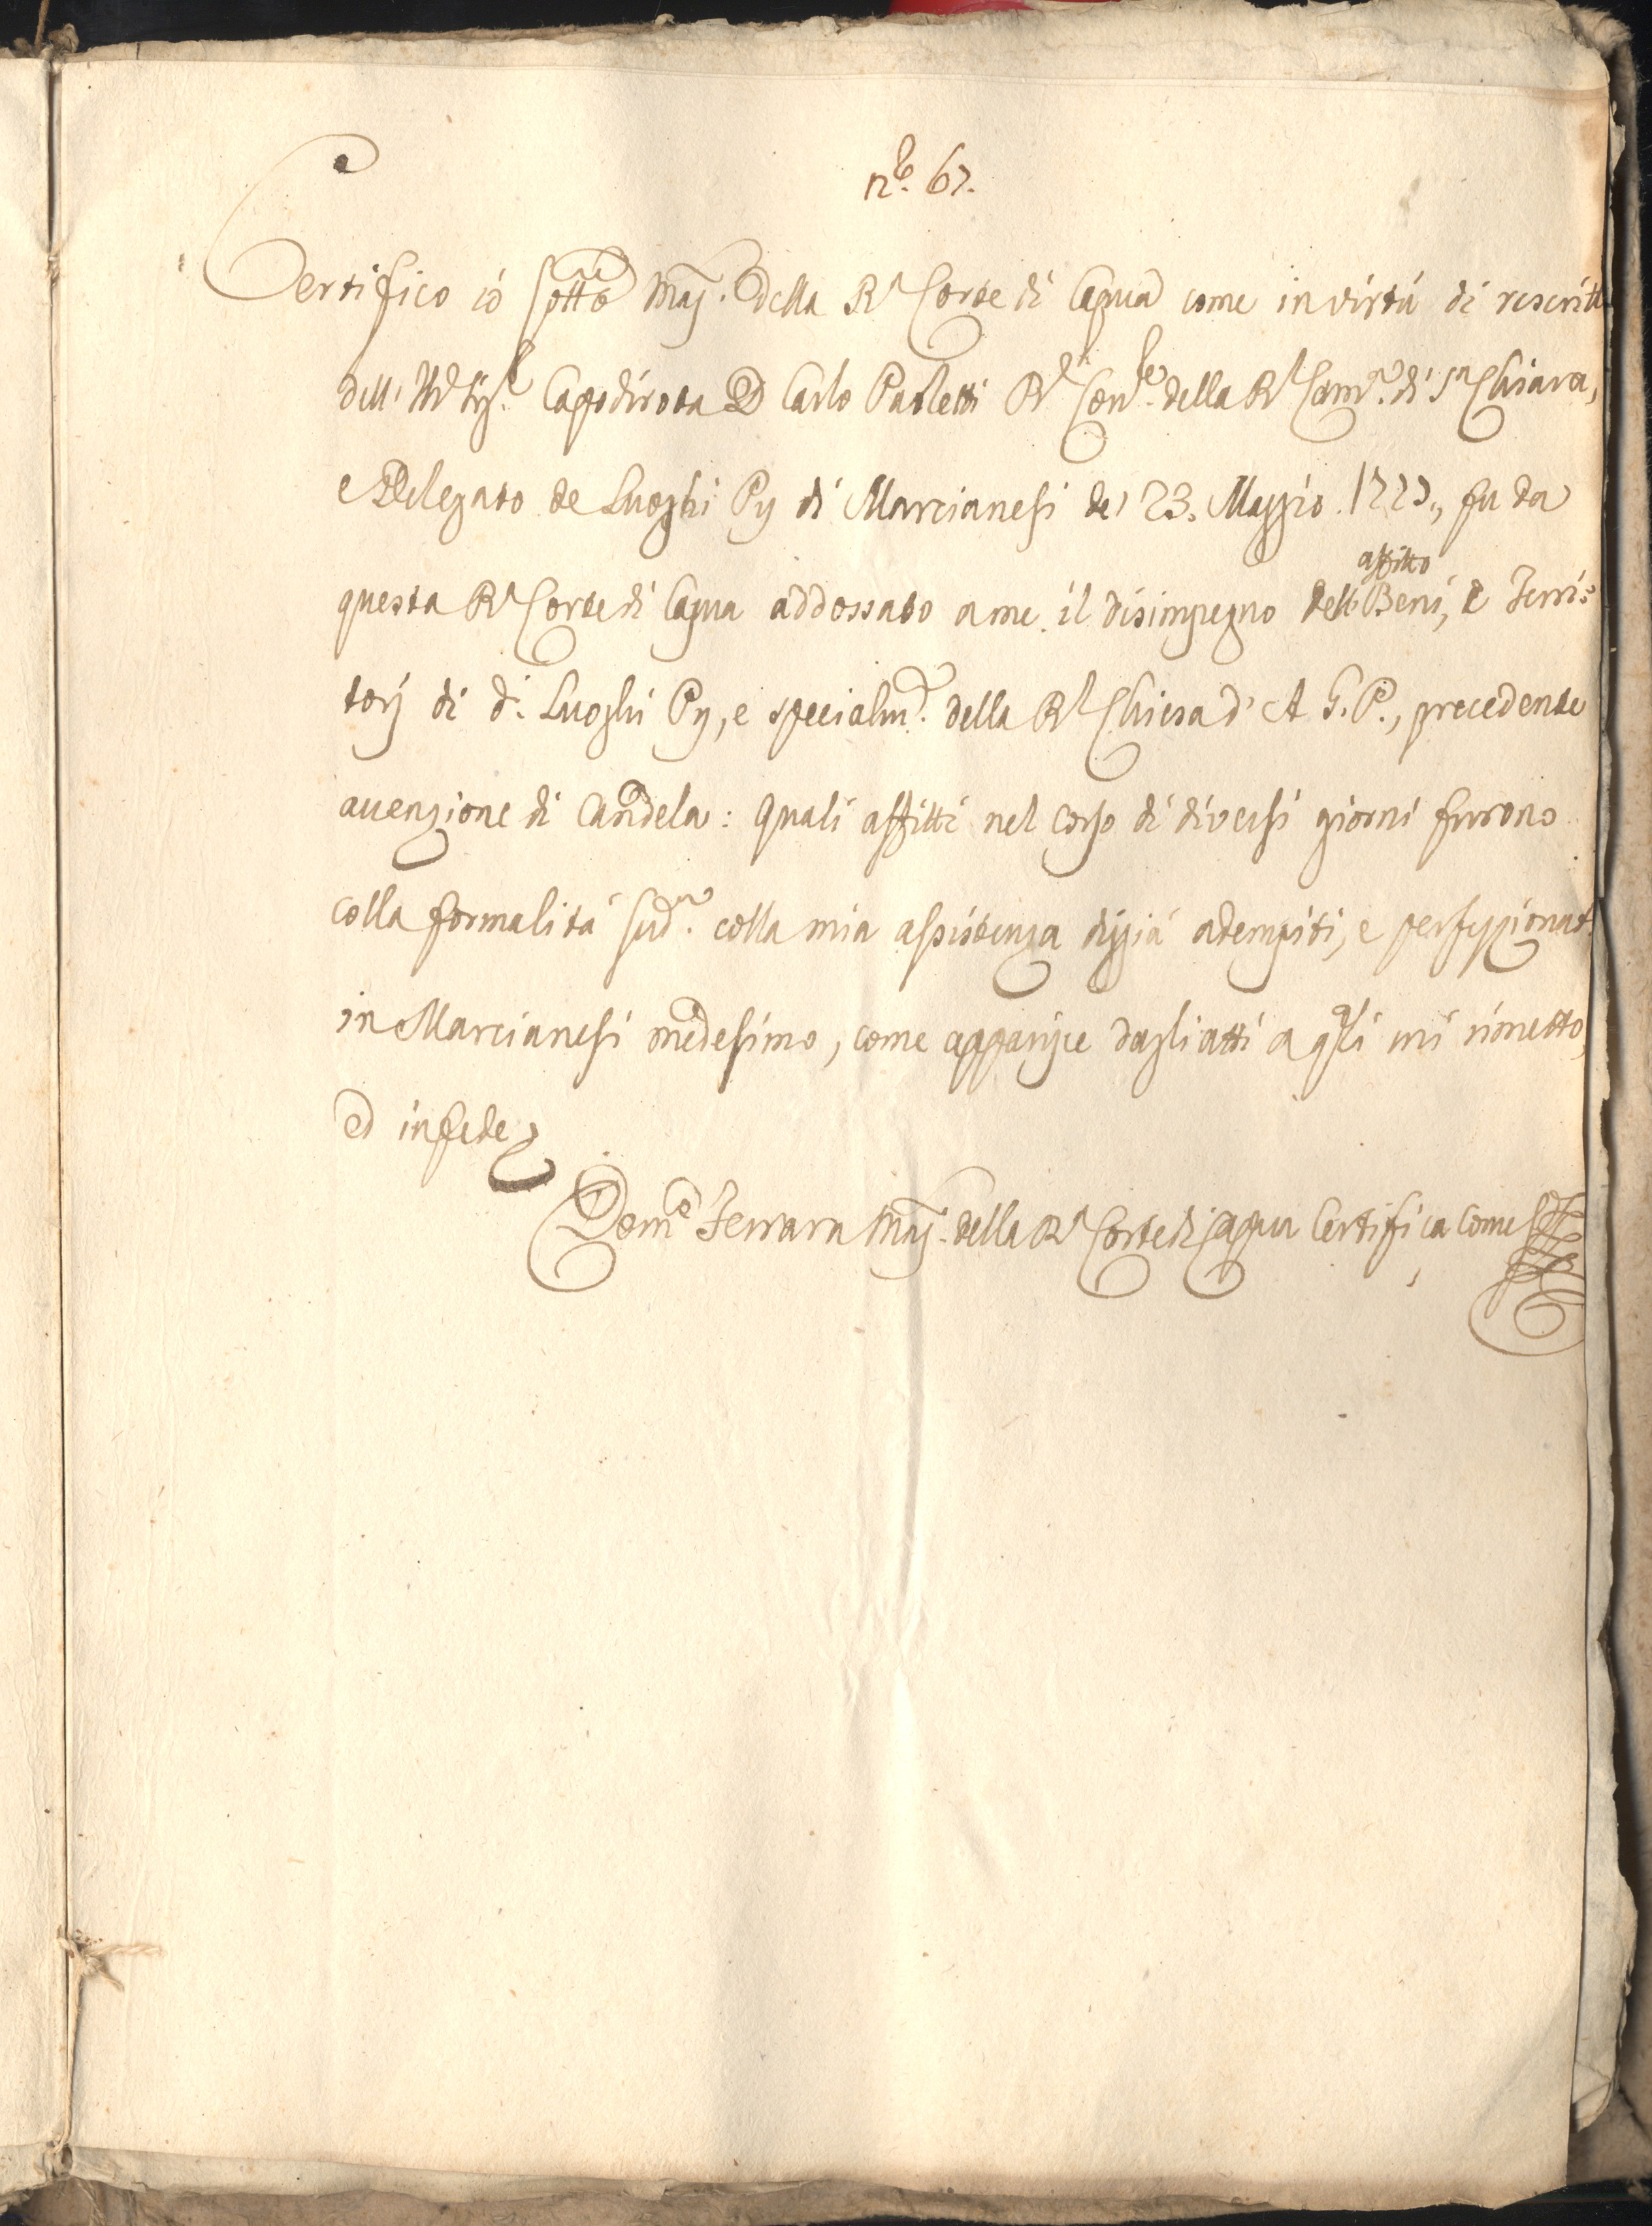 n.º 67.
Certifico io sottô Maj. della Rl Corte di Capua come in virtú di rescritt
dell' Ill Sig.re Capodirota D Carlo Paoletti Rl Con.re della Rl Cam.a di Sa Chiara,
e Delegato de Luoghi Pij di Marcianesi de' 23. Maggio 1777., fu da
questa Rl Corte di Capua addossato a me il disimpegno dell'
affitto
Beni, e Terri=
torj di d.i Luoghi Pij, e specialm.e della Rl Chiesa d' A. G. P., precedente
auenzione di Candela: Quali affitti nel corso di diversi giorni furono
colla formalitá sud.a colla mia assistenza diggiá adempiti, e perfezzionat
in Marcianesi medesimo, come apparisce dagli atti a qli mi rimetto,
ed in fede
Domco Ferrara Maj. della Rl Corte di Capua Certifica come